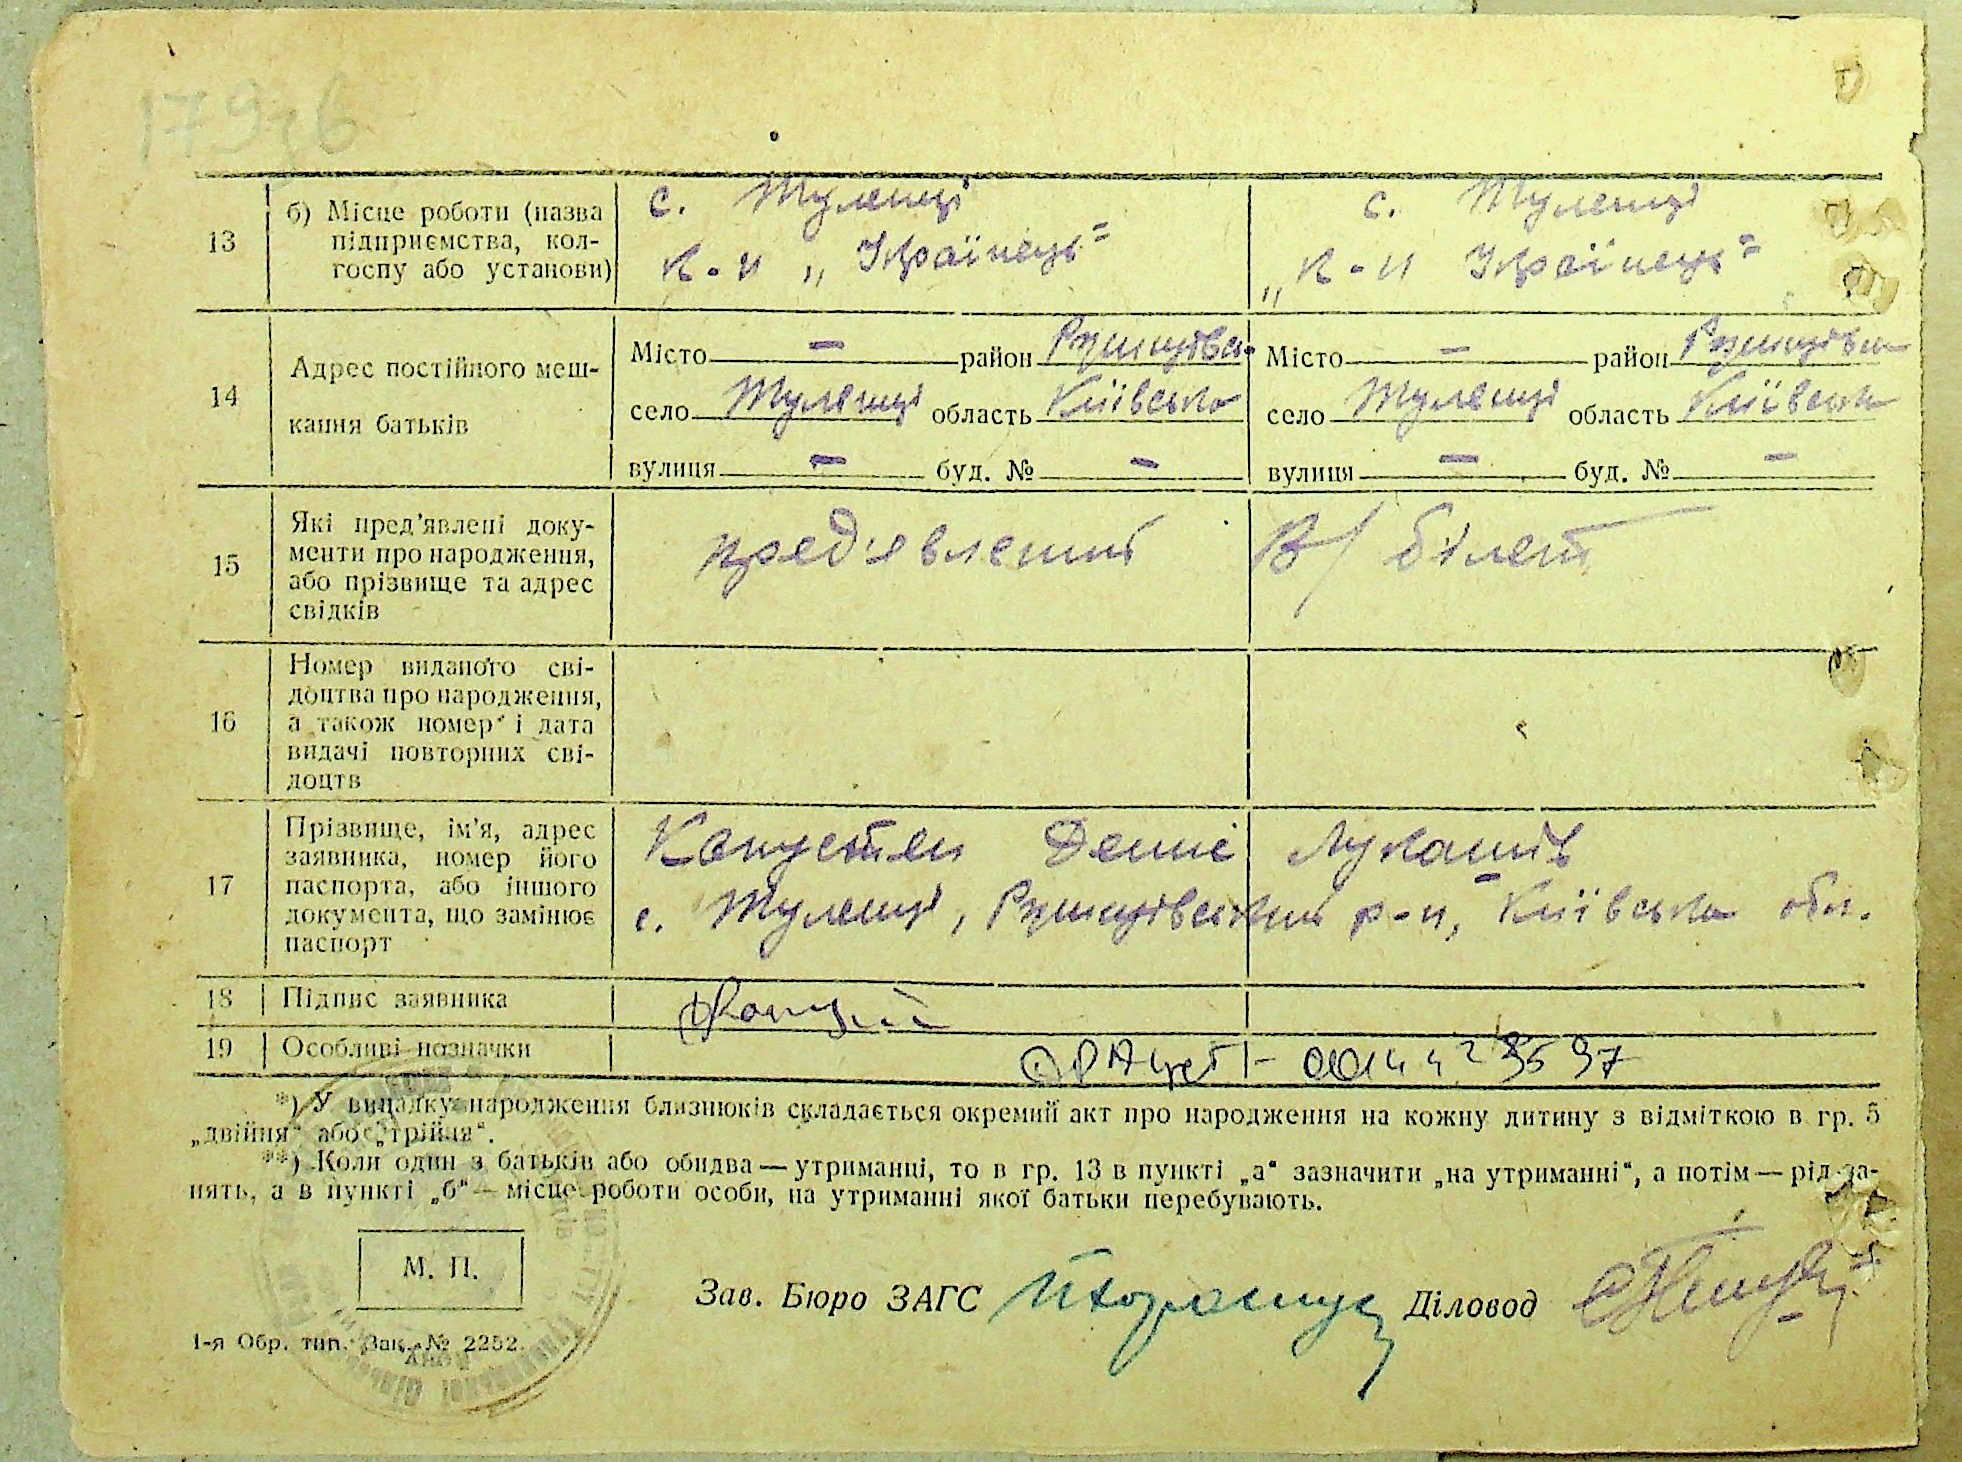 179 зв
13 б) Місце роботи (назва підприємства, колгоспу або установи) с. Тулинці с. Тулинці
к-п „Українець“ „к-п Українець“
14 Адрес постійного мешкання батьків
Місто — район Ржищівськ Місто — район Ржищівськ
село Тулинці область Київська село Тулинці область Київськ
вулиця — буд. № — вулиця — буд. № —
15 Які пред’явлені документи про народження, або прізвище та адрес свідків пред'явлений В/білет
16 Номер виданого свідоцтва про народження, а також номер і дата видачі повторних свідоцтв
17 Прізвище, ім’я, адрес заявника, номер його паспорта, або іншого документа, що замінює паспорт
Капустян Денис Лукашів
с. Тулинці, Ржищівський р-н, Київська обл.
18 Підпис заявника
19 Особливі позначки
*) У випадку народження близнюків складається окремий акт про народження на кожну дитину з відміткою в гр. 5
„двійня“ або „трійця“.
**) Коли один з батьків або обидва — утриманці, то в гр. 13 в пункті „а“ зазначити „на утриманні“, а потім — рід за-
нять, а в пункті „б“ — місце роботи особи, на утриманні якої батьки перебувають.
М. П.
Зав. Бюро ЗАГС Діловод
1-я Обр. тип. Зак. № 2252.